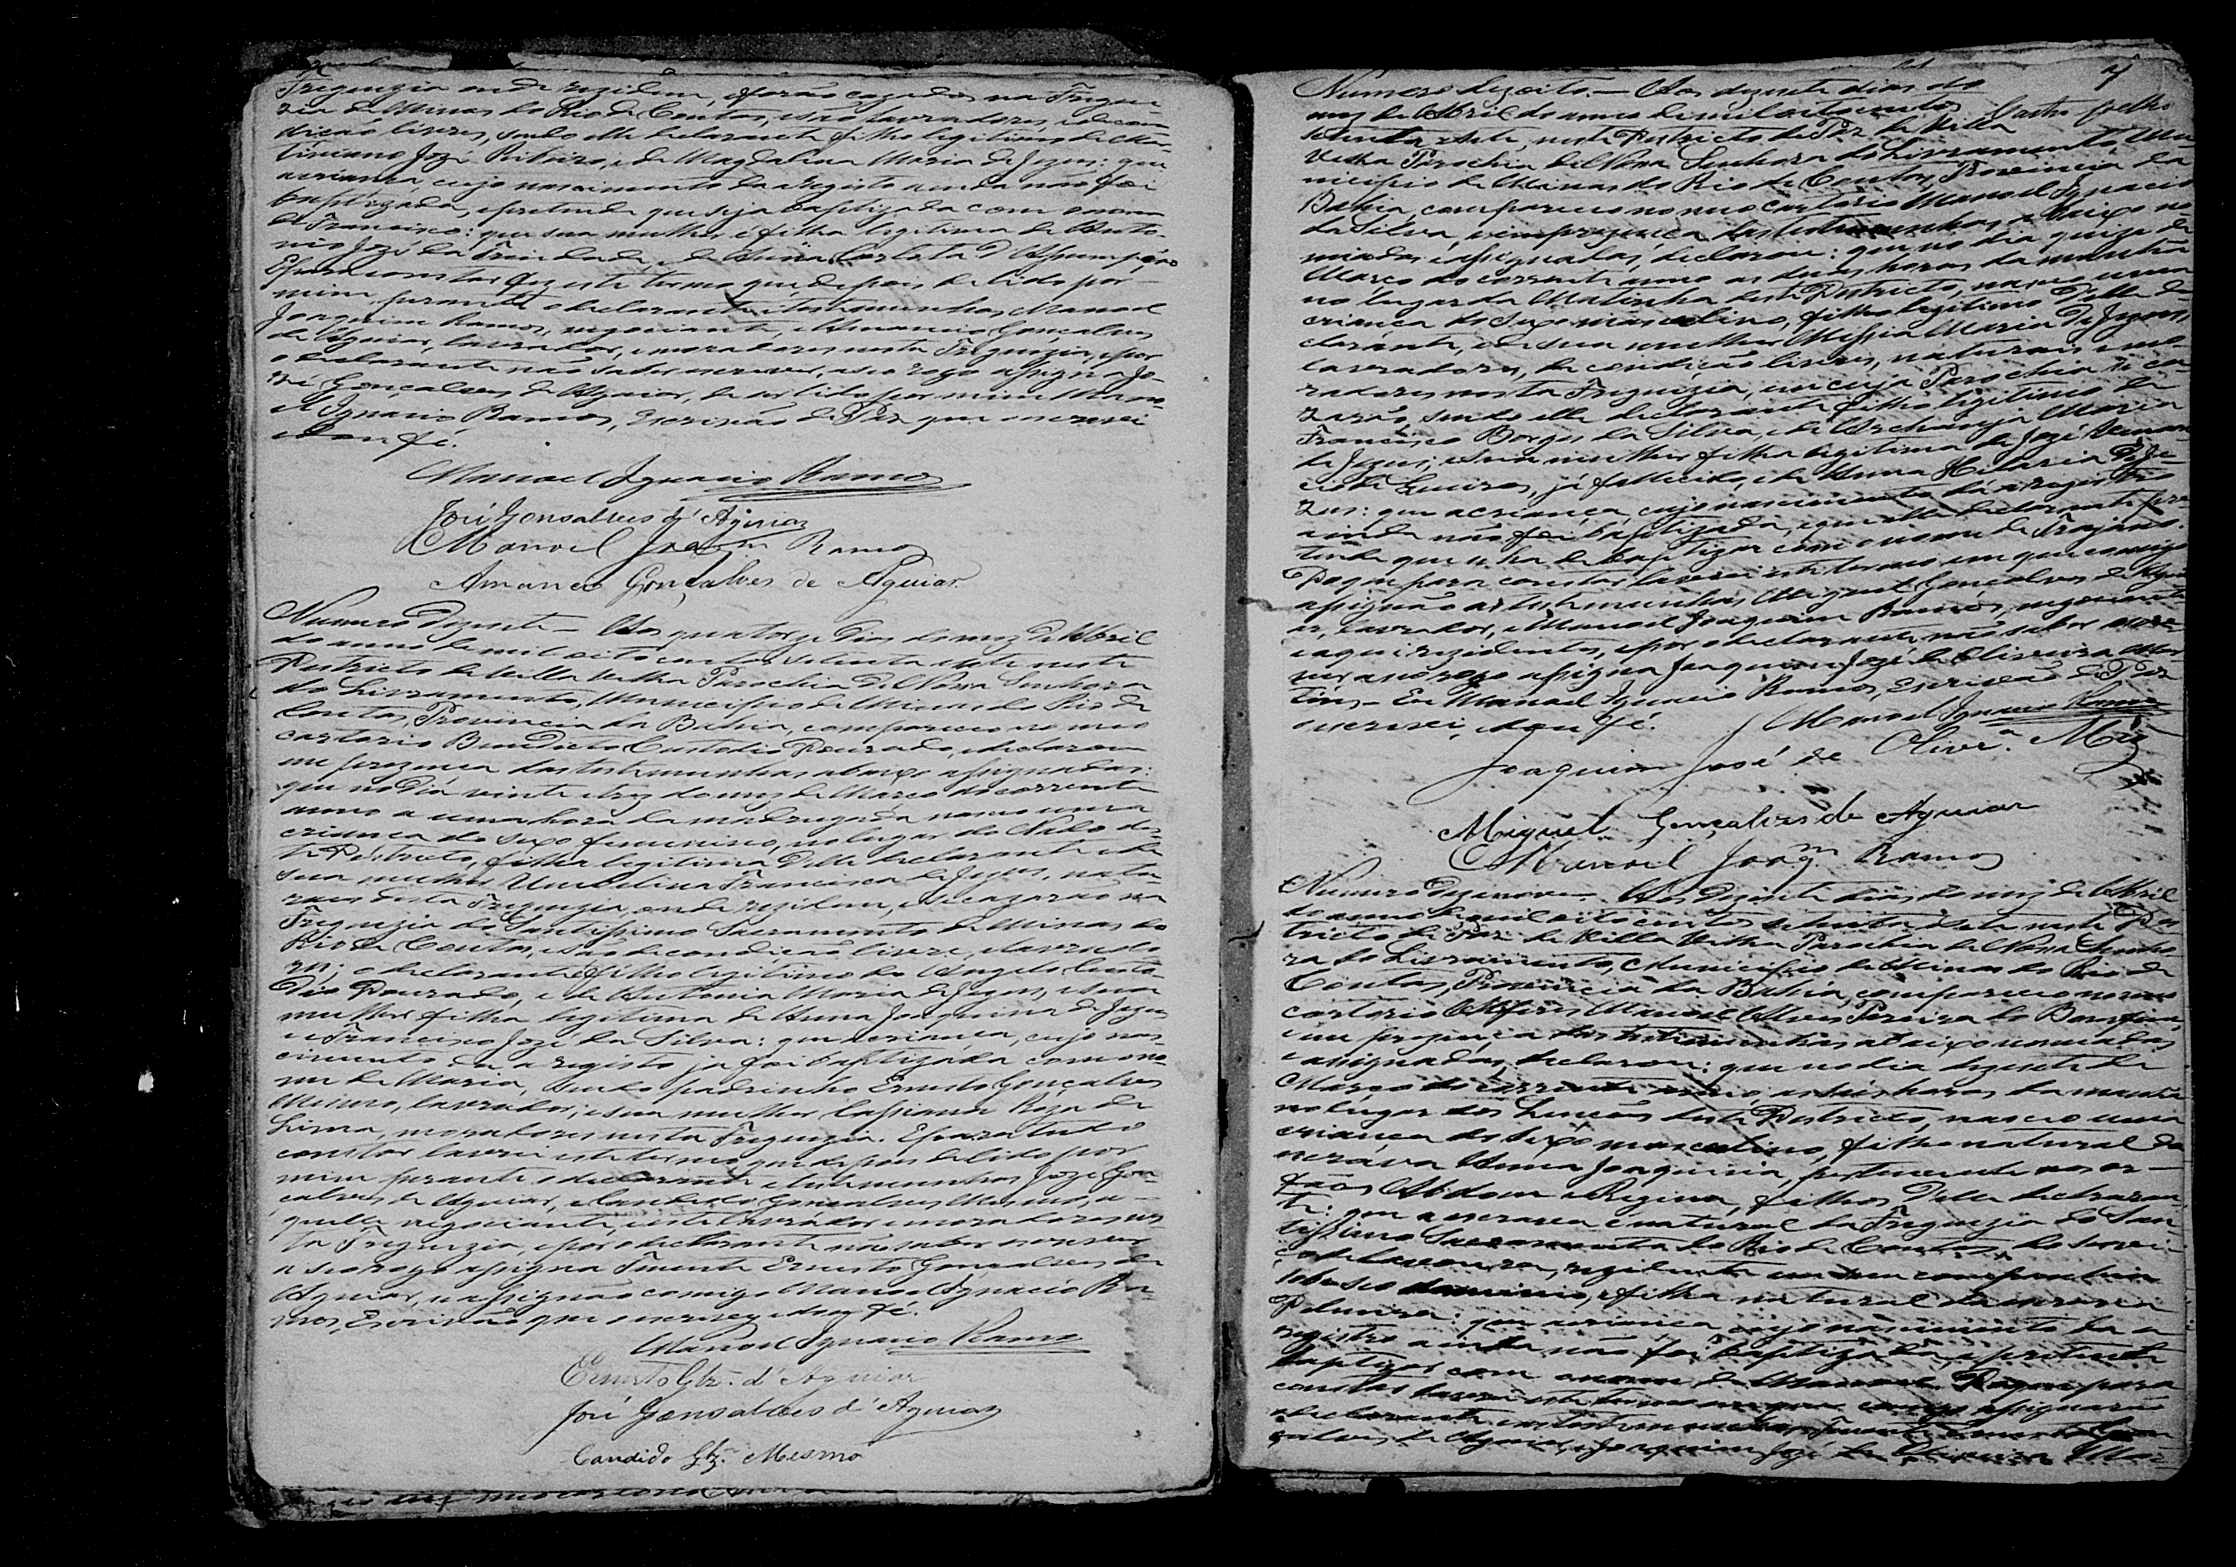 Freguezia onde rezidem, e forão cazados na Fregue-
zia de Minas do Rio de Contas, e são lavradores, e de con-
dição livres, sendo elle declarante filho legitimo de
Jozé Ribeiro, e de Magdalena Maria de Jezus: que
a criança cujo nascimento da a registo ainda não foi
baptizada, e pretende que seja baptizada com o nome
de Francisco: que sua mulher é filha legitima de Anto-
nio Jozé da Trindade, e de Carlota d'Assumpção
E para constar fiz este termo que depois de lido por
mim perante o declarante e testemunhas Manoel
Joaquim Ramos, negociante, e Amancio Gonçalves
de Aguiar, lavrador, e moradores nesta Freguezia, e por
o declarante não saber escrever, a seo rogo assigna Jo-
zé Gonçalves de Aguiar, do lido por mim Mano-
el Ignacio Ramos, Escrivão de Paz que escrevi
e dou fé.
Manoel Ignacio Ramos
José Gonsalves d'Aguiar
Manoel Joaqm Ramos
Amancio Gonçalves de Aguiar
Numero dezesete — Aos quatorze dias do mez de Abril
do anno de mil oito centos setenta e sete neste
Districto de Villa Velha Parochia de Nossa Senhora
do Livramento, Municipio de Minas do Rio de
Contas, Provincia da Bahia, compareceo no meo
cartorio Benedicto Custodio Dourado, e declarou
em prezença das testemunhas abaixo assignadas:
que no dia vinte e trez do mez de Março do corrente
anno a uma hora da madrugada nasceo uma
criança do sexo feminino, no lugar do des-
te Districto, filha legitima delle declarante e de
sua mulher Umbelina Francisca de Jezus, natu-
raes desta Freguezia, onde rezidem, e se cazarão na
Freguezia do Santissimo Sacramento de Minas do
Rio de Contas, e são de condição livre, e lavrado-
res; o declarante filho legitimo de Angelo Custo-
dio Dourado, e de Antonia Maria de Jezus, e sua
mulher filha legitima de Anna Joaquina de Jezus
e Francisco Jozé da Silva: que a criança, cujo nas-
cimento da a registo ja foi baptizada com o no-
me de Maria, sendo padrinho Ernesto Gonçalves
Mesmo, lavrador, e sua mulher Cassiana Roza de
Lima, moradores nesta Freguezia. E para tudo
constar lavrei este termo que depois de lido por
mim perante o declarante e testemunhas Jozé Gon-
çalves de Aguiar, e Candido Gonçalves Mesmo, a-
quelle negociante, e este lavrador e moradores nes-
ta Freguezia, e por o declarante não saber escrever
a seo rogo assigna Tenente Ernesto Gonçalves de
Aguiar, e assignão comigo Manoel Ignacio Ra-
mos, Escrivão que escrevy e dou fé.
Manoel Ignacio Ramos
Ernesto Glz. d'Aguiar
José Gonsalves d'Aguiar
Candido Glz. Mesmo
Numero dezoito. — Aos dezesete dias do
mez de Abril do anno de mil oitocentos
setenta e sete, neste Districto de Paz de Villa
Velha Parochia de Nossa Senhora do Livramento, Mu-
nicipio de Minas do Rio de Contas, Provincia da
Bahia, compareceo no meo cartorio Manoel Ignacio
da Silva, e em prezença das testemunhas abaixo no-
miadas e assignadas, declarou: que no dia quinze de
Março do corrente anno as duas horas da manhã
no lugar da Matinha deste Districto, nasceo uma
criança do sexo masculino, filho legitimo delle de-
clarante, e de sua mulher Messia Maria de Jezus,
lavradores, de condição livres, naturaes e mo-
radores nesta Freguezia, em cuja Parochia se ca-
zarão, sendo elle declarante filho legitimo de
Francisco Borges da Silva, e de Archanja Maria
de Jezus; e sua mulher filha legitima de Jozé
ja fallecido, e de Anna Hilaria de Je-
zus: que a criança, cujo nascimento dá a registro
ainda não foi baptizada, e que elle declarante pre-
tende que se ha de baptizar com o nome de Trajano.
Do que para constar lavrei este termo em que comigo
assignão as testemunhas Miguel Gonçalves de Agui-
ar, lavrador, e Manoel Joaquim Ramos, negociante
e aqui rezidentes, e por o declarante não saber escre-
ver a seo rogo assigna Joaquim Jozé de Oliveira Mar-
tins. Eu Manoel Ignacio Ramos, Escrivão de Paz
escrevi, e dou fé. Manoel Ignacio Ramos
Joaquim José de Olivra. Miz
Miguel Gonçalves de Aguiar
Manoel Joaqm Ramos
Numero dezenove — Aos dezesete dias do mez de Abril
do anno de mil oito centos setenta e sete neste Dis-
tricto de Paz de Villa Velha Parochia de Nossa Senho-
ra do Livramento, Municipio de Minas do Rio de
Contas, Provincia da Bahia, compareceo no meo
cartorio Alferes Manoel Alves Pereira do Bomfim,
e em prezença das testemunhas abaixo nomiadas
e assignadas, declarou: que no dia dezesete de
Março do corrente anno, as seis horas da manhã
no lugar dos deste Districto, nasceo uma
criança do sexo masculino, filho natural da
escrava Anna Joaquina, pertencente aos or-
fãos Abdom e Regina, filhos delle declaran-
te: que a escrava é natural da Freguezia do San-
tissimo Sacramento do Rio de Contas, do servi-
ço de lavoura, rezidente em sua companhia
sob seo dominio, e filha natural da escrava
que a criança, cujo nascimento da a
registro ainda não foi baptizada, e pretende
baptizar com o nome de Manoel. Do que para
constar lavrei este termo em que comigo assignarão
o declarante e as testemunhas, Tenente Ernesto Gon-
çalves de Aguiar, e Joaquim Jozé de Oliveira Mar-